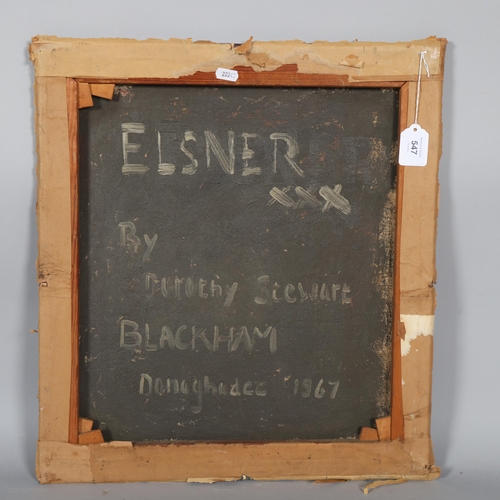 ELSNER
XXX
By
Dorothy Stewart
BLACKHAM
Donaghadee 1967
547